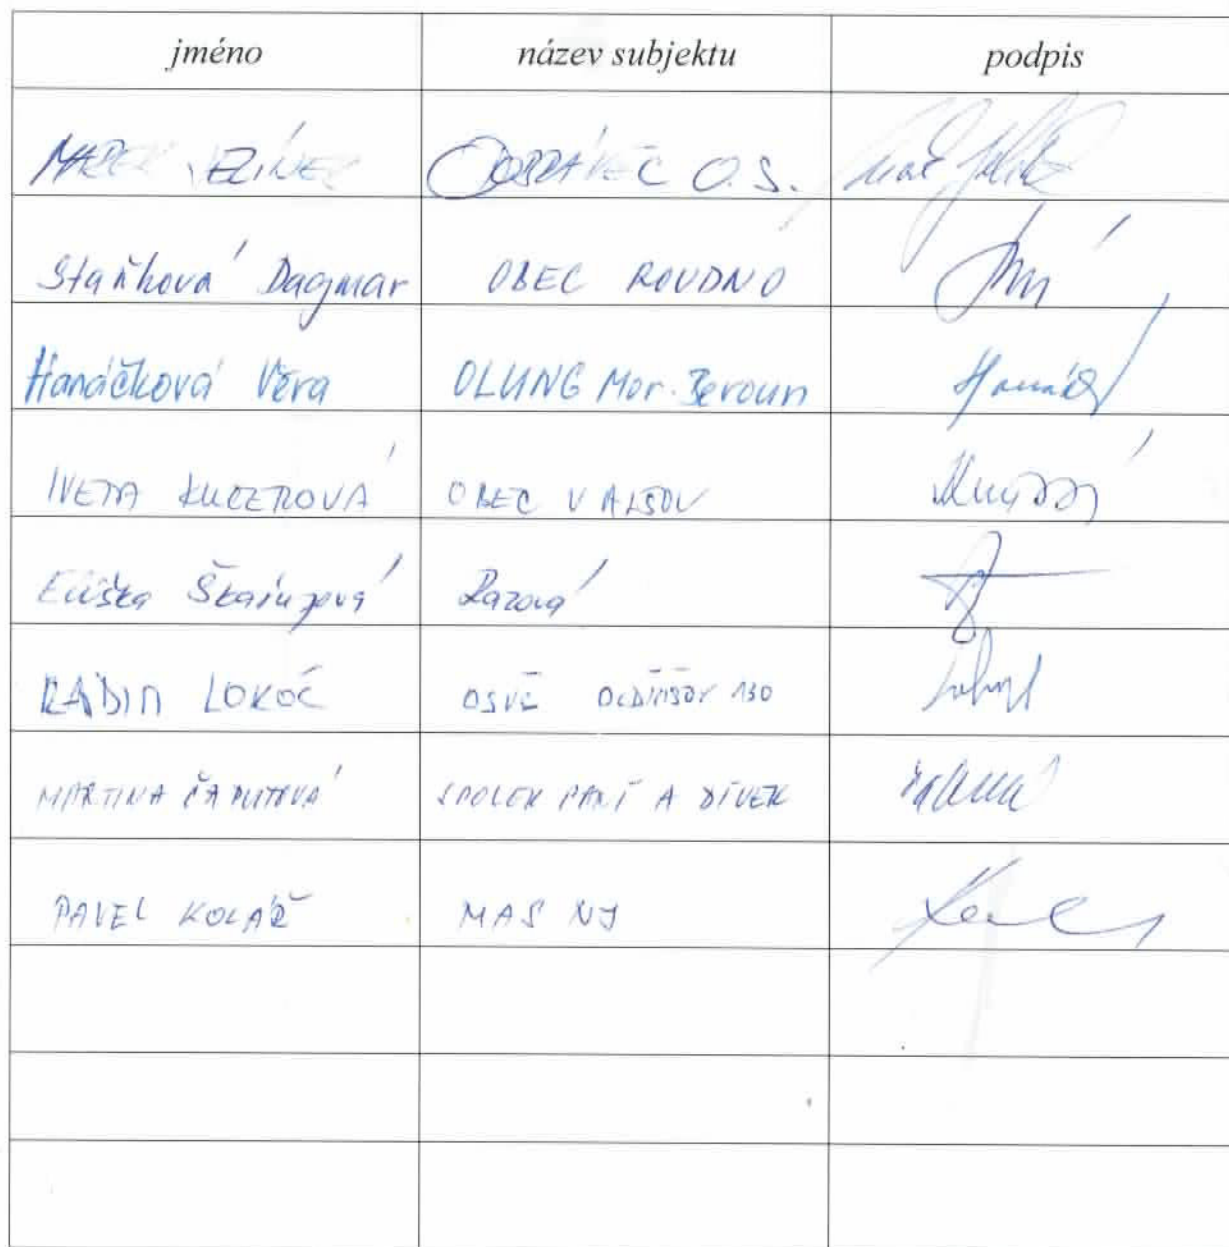 jméno název subjektu podpis
MAREK O.S.
Staňková Dagmar OBEC ROUDNO
Hanáčková Věra OLUNG Mor. Beroun
IVETA KUČEROVÁ OBEC VALŠOV
Eliška Razová
RADIM LOKOČ OSVČ OLDŘIŠOV 130
MARTINA ČAPUTOVÁ SPOLEK PANÍ A DÍVEK
PAVEL KOLÁŘ MAS NJ